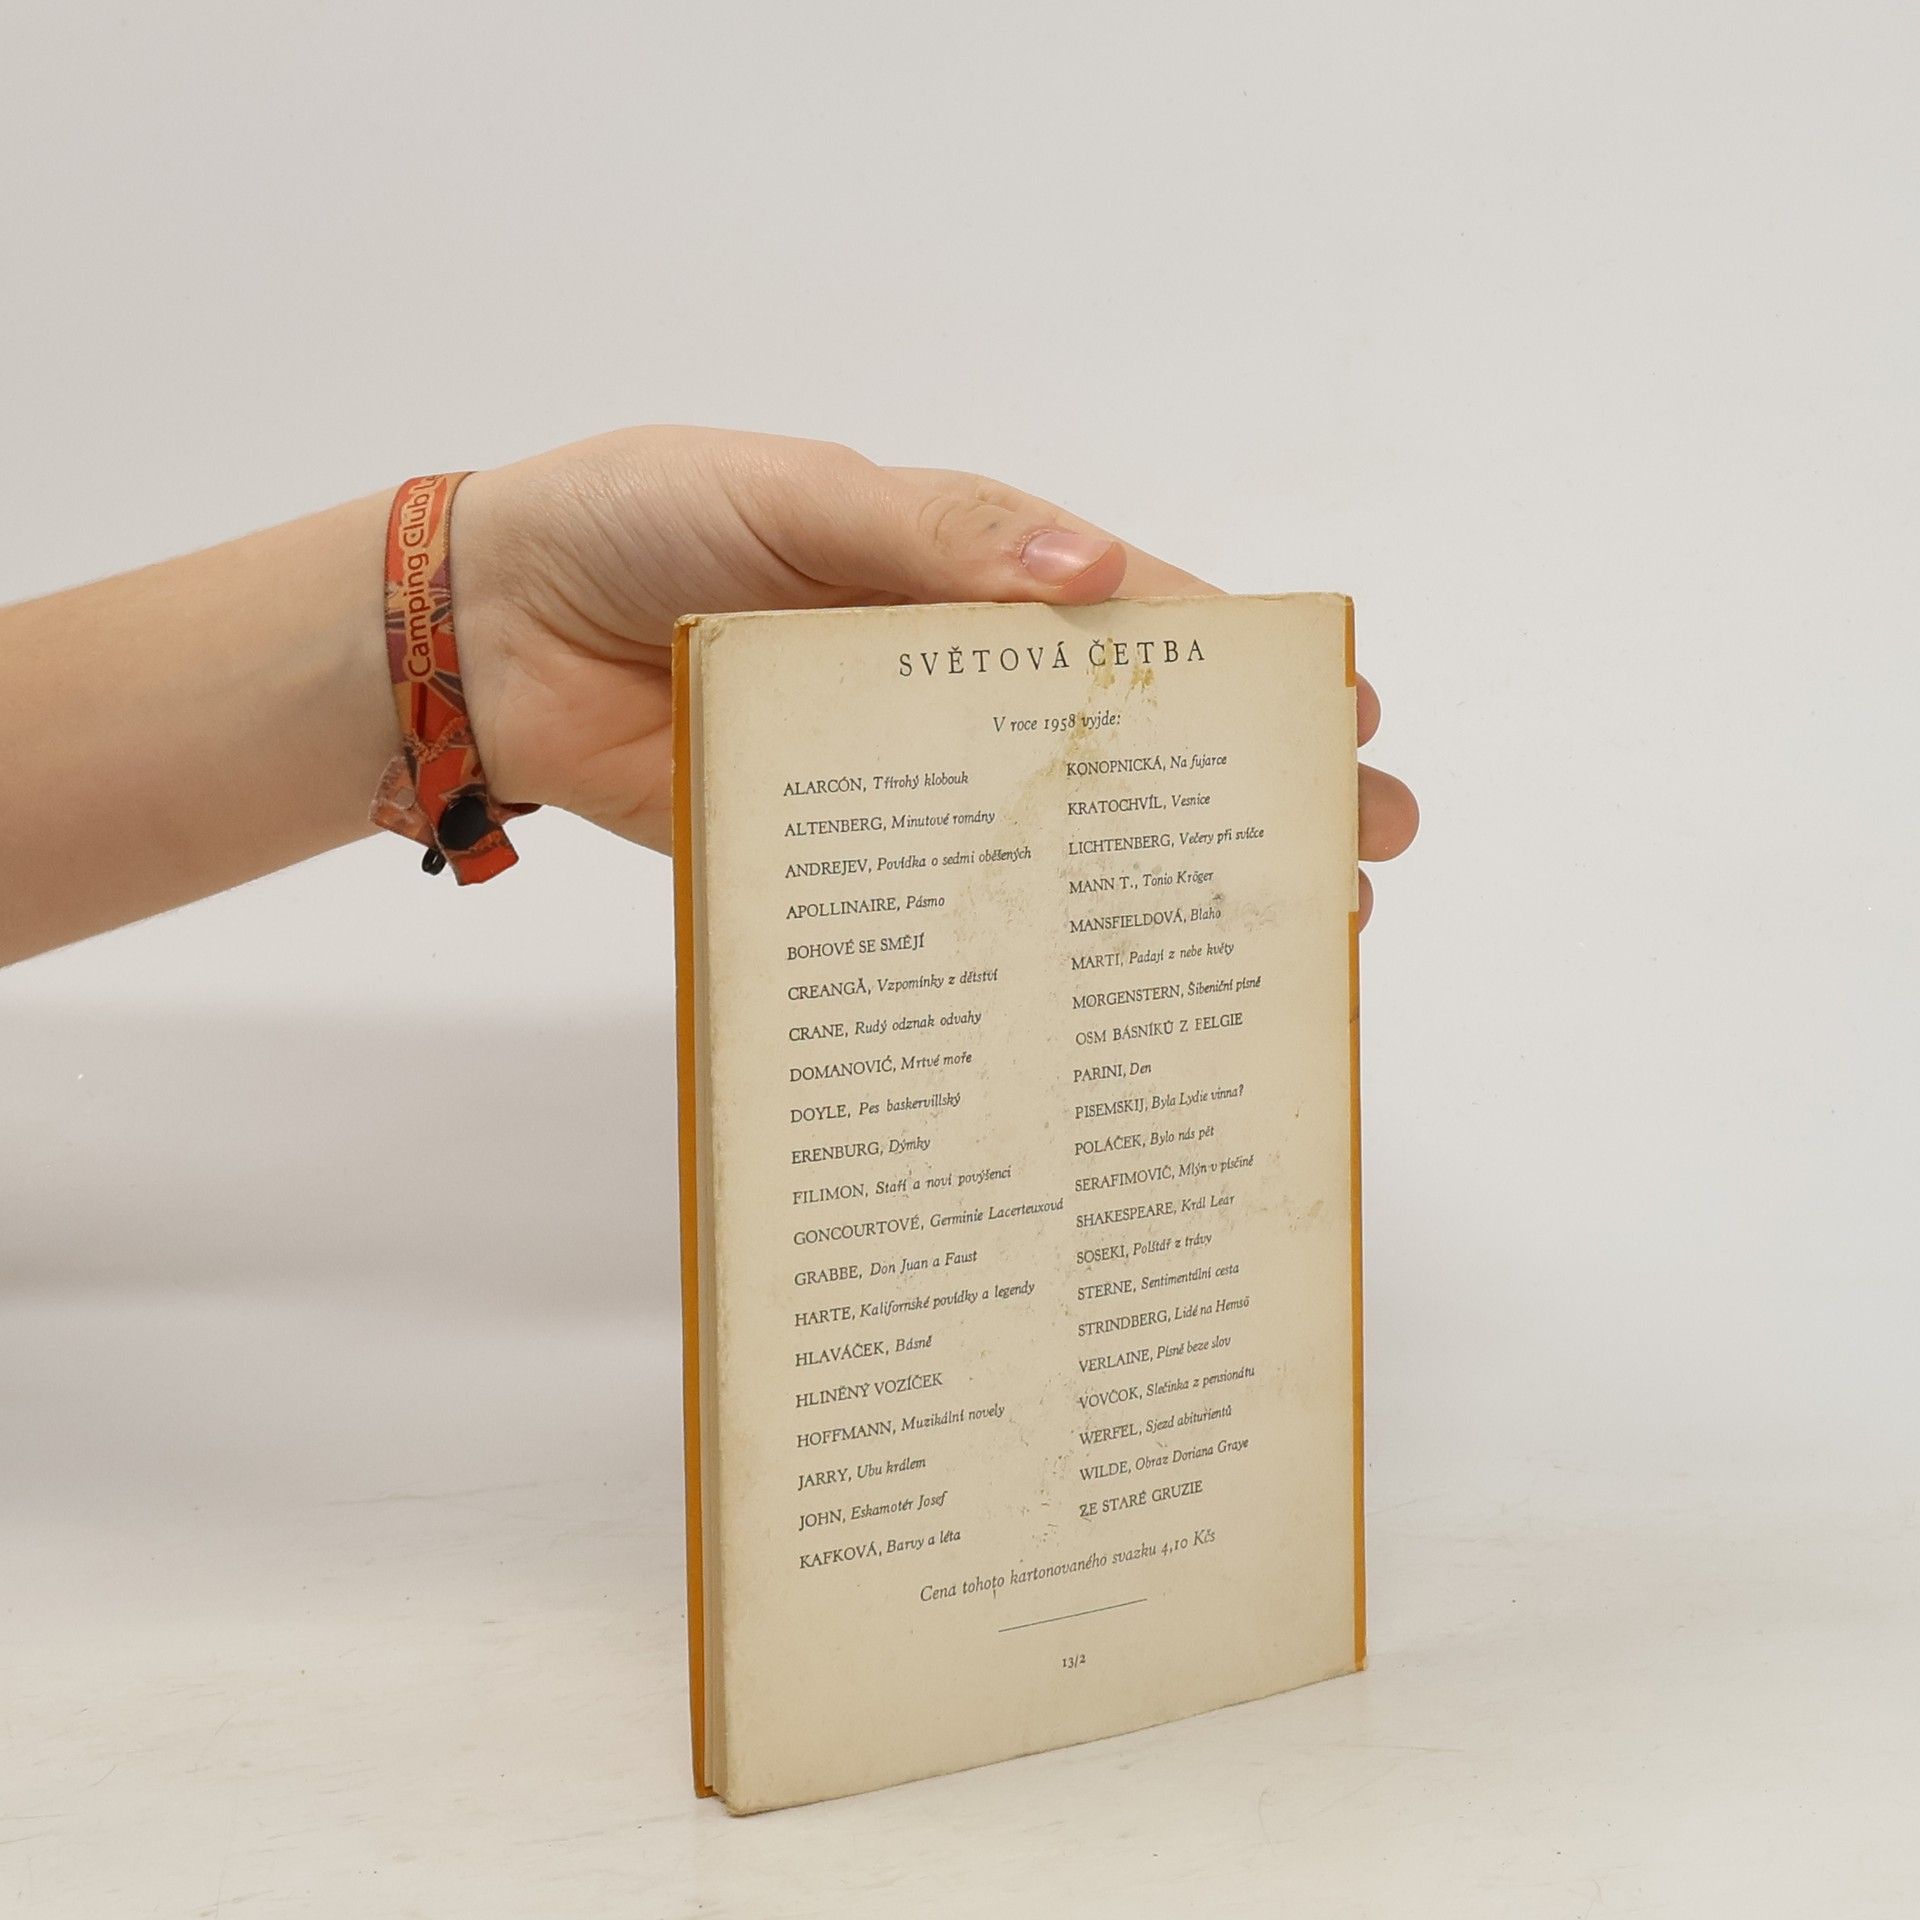 Camping Club
SVĚTOVÁ ČETBA
V roce 1958 vyjde:
ALARCÓN, Třírohý klobouk
ALTENBERG, Minutové romány
ANDREJEV, Povídka o sedmi oběšených
APOLLINAIRE, Pásmo
BOHOVÉ SE SMĚJÍ
CREANGĂ, Vzpomínky z dětství
CRANE, Rudý odznak odvahy
DOMANOVIĆ, Mrtvé moře
DOYLE, Pes baskervillský
ERENBURG, Dýmky
FILIMON, Staří a noví povýšenci
GONCOURTOVÉ, Germinie Lacerteuxová
GRABBE, Don Juan a Faust
HARTE, Kalifornské povídky a legendy
HLAVÁČEK, Básně
HLINĚNÝ VOZÍČEK
HOFFMANN, Muzikální novely
JARRY, Ubu králem
JOHN, Eskamotér Josef
KAFKOVÁ, Barvy a léta
KONOPNICKÁ, Na fujarce
KRATOCHVÍL, Vesnice
LICHTENBERG, Večery při svíčce
MANN T., Tonio Kröger
MANSFIELDOVÁ, Blaho
MARTI, Padají z nebe květy
MORGENSTERN, Šibeniční písně
OSM BÁSNÍKŮ Z BELGIE
PARINI, Den
PISEMSKIJ, Byla Lydie vinna?
POLÁČEK, Bylo nás pět
SERAFIMOVIČ, Mlýn v písčině
SHAKESPEARE, Král Lear
SOSEKI, Polštář z trávy
STERNE, Sentimentální cesta
STRINDBERG, Lidé na Hemsö
VERLAINE, Písně beze slov
VOVČOK, Slečinka z pensionátu
WERFEL, Sjezd abiturientů
WILDE, Obraz Doriana Graye
ZE STARÉ GRUZIE
Cena tohoto kartonovaného svazku 4,10 Kčs
13/2